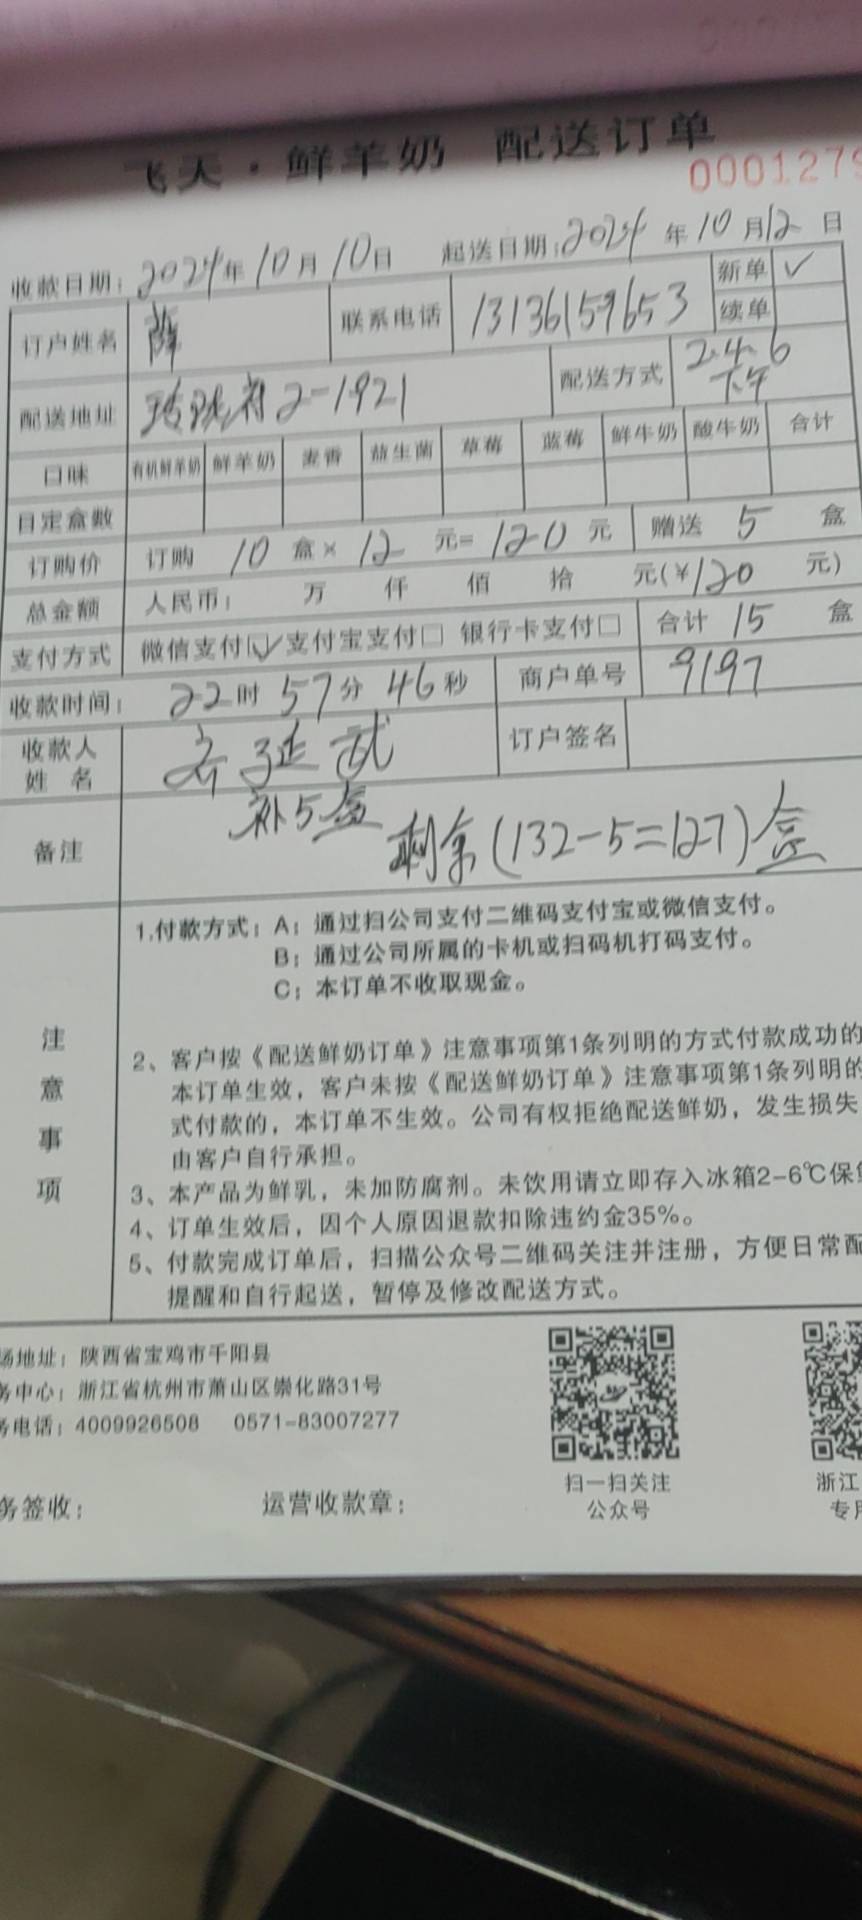 飞天·鲜羊奶 配送订单
000127
收款日期：2024年10月10日 起送日期：2024年10月12日
订户姓名 薛 联系电话 13136159653 新单 ✓
续单
配送地址 玲珑府2-1921 配送方式 2.4.6
下午
口味 有机鲜羊奶 鲜羊奶 麦香 益生菌 草莓 蓝莓 鲜牛奶 酸牛奶 合计
日定盒数
订购价 订购 10 盒× 12 元= 120 元 赠送 5 盒
总金额 人民币： 万 仟 佰 拾 元(¥120 元)
支付方式 微信支付☑ 支付宝支付□ 银行卡支付□ 合计 15 盒
收款时间： 22时57分46秒 商户单号 9197
收款人
姓 名 齐延武 订户签名
备注 补5盒 剩余(132-5=127)盒
注意事项
1.付款方式：A：通过扫公司支付二维码支付宝或微信支付。
B：通过公司所属的卡机或扫码机打码支付。
C：本订单不收取现金。
2、客户按《配送鲜奶订单》注意事项第1条列明的方式付款成功的
本订单生效，客户未按《配送鲜奶订单》注意事项第1条列明的
式付款的，本订单不生效。公司有权拒绝配送鲜奶，发生损失
由客户自行承担。
3、本产品为鲜乳，未加防腐剂。未饮用请立即存入冰箱2-6℃保
4、订单生效后，因个人原因退款扣除违约金35%。
5、付款完成订单后，扫描公众号二维码关注并注册，方便日常配
提醒和自行起送，暂停及修改配送方式。
场地址：陕西省宝鸡市千阳县
务中心：浙江省杭州市萧山区崇化路31号
务电话：4009926508 0571-83007277
扫一扫关注
公众号
浙江
专用
务签收： 运营收款章：